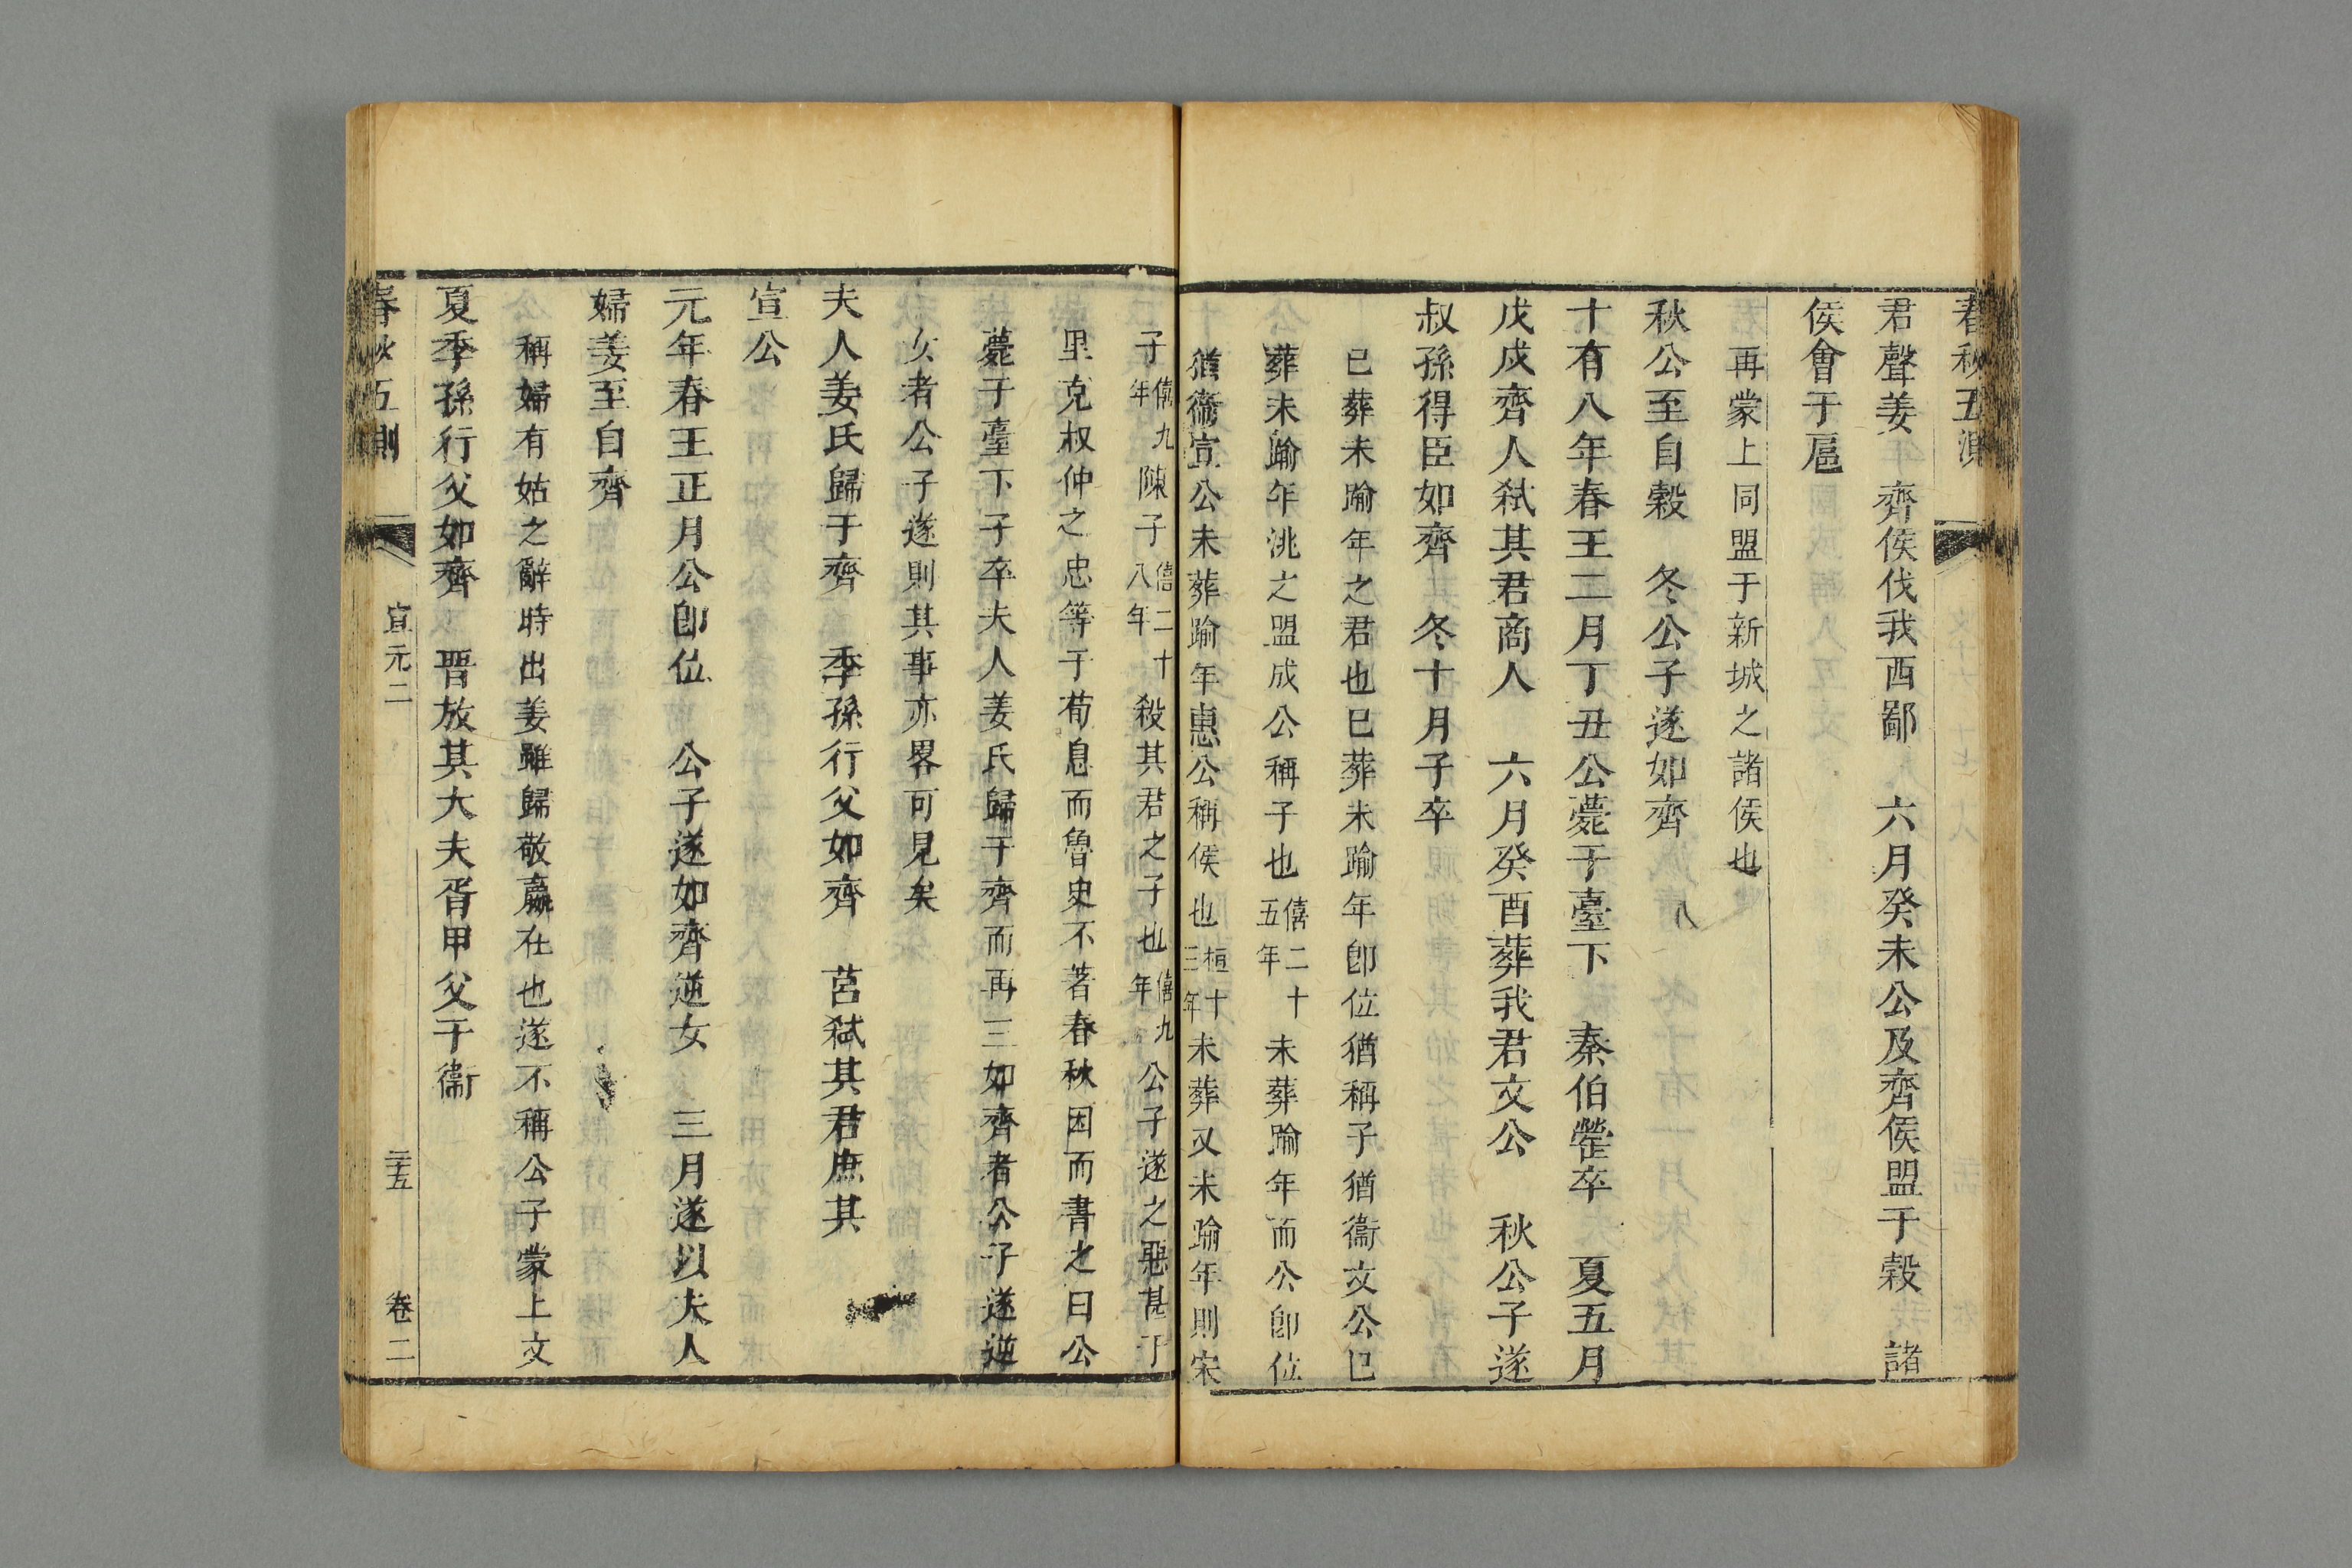 春秋五測
君聲姜　齊侯伐我西鄙　六月癸未公及齊侯盟于穀　諸
侯會于扈
再蒙上同盟于新城之諸侯也
秋公至自穀　冬公子遂如齊
十有八年春王二月丁丑公薨于臺下　秦伯罃卒　夏五月
戊戌齊人弒其君商人　六月癸酉葬我君文公　秋公子遂
叔孫得臣如齊　冬十月子卒
已葬未踰年之君也已葬未踰年卽位猶稱子猶衞文公已
葬未踰年洮之盟成公稱子也僖二十五年未葬踰年而公卽位
猶衞宣公未葬踰年惠公稱侯也桓十三年未葬又未踰年則宋
子僖九年陳子僖二十八年殺其君之子也僖九年公子遂之惡甚于
里克叔仲之忠等于荀息而魯史不著春秋因而書之曰公
薨于臺下子卒夫人姜氏歸于齊而再三如齊者公子遂逆
女者公子遂則其事亦畧可見矣
夫人姜氏歸于齊　季孫行父如齊　莒弒其君庶其
宣公
元年春王正月公卽位　公子遂如齊逆女　三月遂以夫人
婦姜至自齊
稱婦有姑之辭時出姜雖歸敬嬴在也遂不稱公子蒙上文
夏季孫行父如齊　晉放其大夫胥甲父于衞
春秋五測　宣元二　三十五　卷二